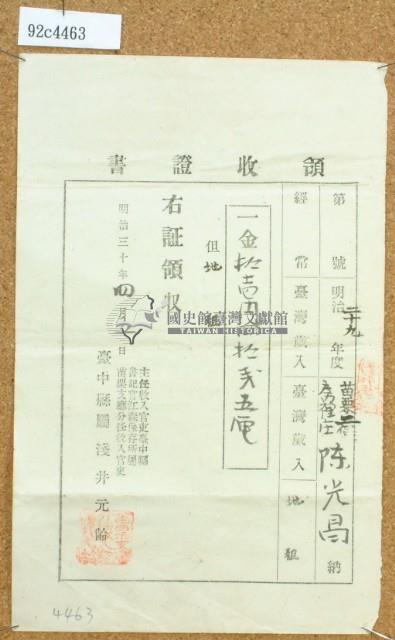 92c4463
領收證書
第 號 明治二十九年度 苗栗二堡房裡庄 陳光昌 納
經常 臺灣歲入 臺灣歲入 地租
一金拾壱円 拾弐五厘
但地租
右証領収
明治三十年四月 日
主任收入官吏臺中縣
苗栗支廳分任收入官吏
臺中縣屬 淺井元齡
國史館臺灣文獻館
TAIWAN HISTORICA
4463